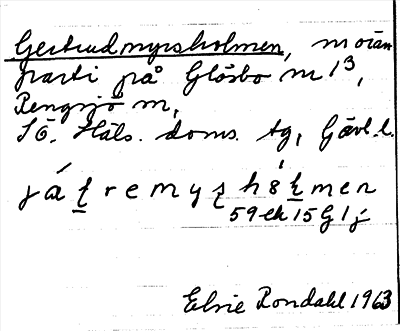 Gertrudmyrsholmen, morän
parti på Glösbo m 1³,
Rengsjö m,
SÖ. Häls. doms. tg, Gävl. l.
59 ek 15 G 1 j
Elsie Rondahl 1963